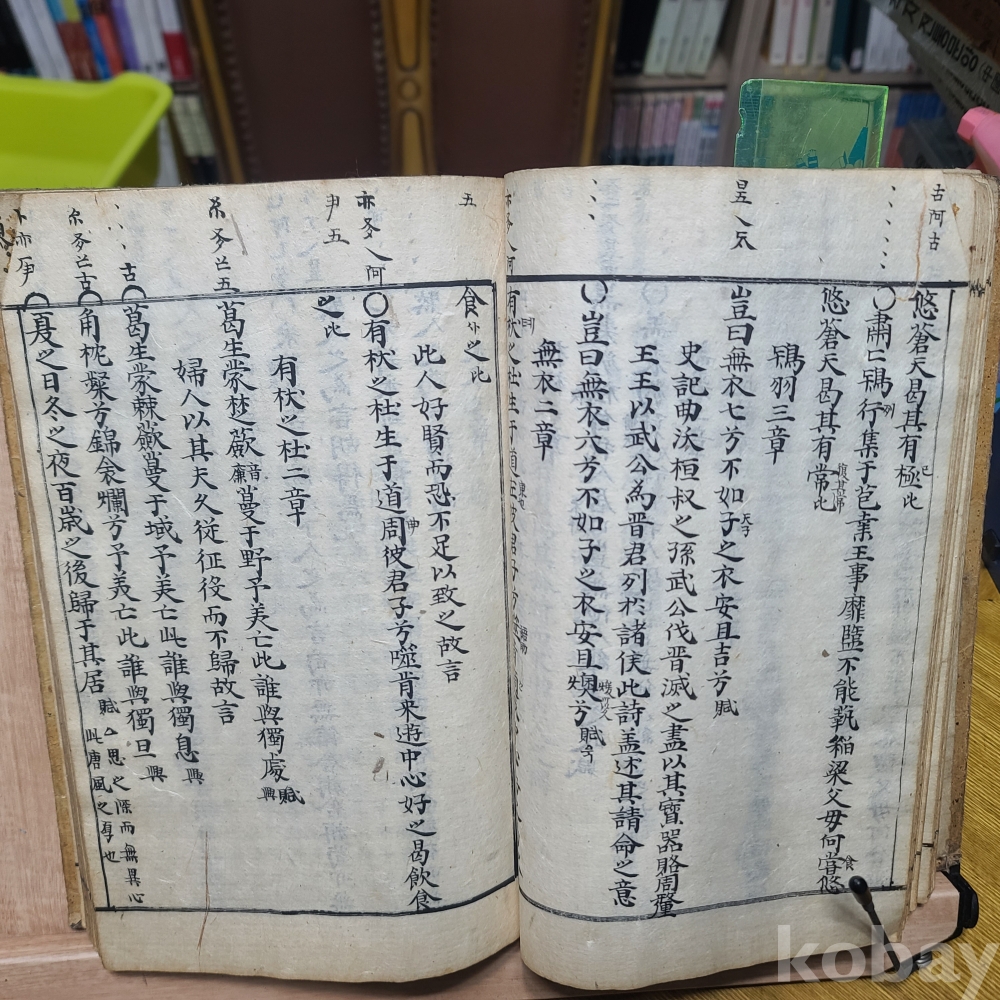 古阿古
悠蒼天曷其有極 比
〇肅〻鴇行集于苞桒王事靡盬不能蓺稻粱父毋何嘗 食 悠
悠蒼天曷其有常 比
鴇羽三章
昱
豈曰無衣七兮不如子 天子 之衣安且吉兮 賦
史記曲沃桓叔之孫武公伐晋滅之盡以其寶器賂周釐
王王以武公為晋君列扵諸侯此詩盖述其請命之意
〇豈曰無衣六兮不如子之衣安且燠兮 賦
無衣二章
有杕之杜生于道
五
食之 比
此人好賢而恐不足以致之故言
〇有杕之杜生于道周彼君子兮噬肯来遊中心好之曷飲食
之 比
有杕之杜二章
五
葛生蒙楚蘞 音廉 蔓于野予美亡此誰與獨處 賦興
婦人以其夫久從征役而不歸故言
古
〇葛生蒙棘蘞蔓于域予美亡此誰與獨息 興
古
〇角枕粲兮錦衾爛兮予美亡此誰與獨旦 興
〇夏之日冬之夜百歲之後歸于其居 賦 思之深而無異心此唐風之厚也
kobay